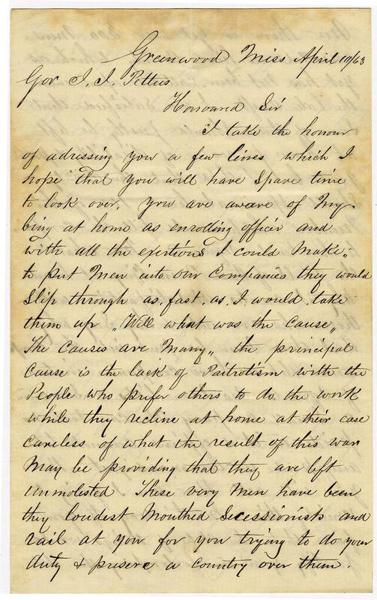 Greenwood Miss April 10/63
Gov J. J. Pettus
Honoured Sir
I take the honour
of adressing you a few lines which I
hope that you will have spare time
to look over. you are aware of my
bing at home as enrolling officer and
with all the exertions I could make
to put men into our companies they would
slip through as. fast. as. I would take
them up "Well what was the cause"
The causes are many" the principal
cause is the lack of Paitriotism with the
People who prefer others to do the work
while they recline at home at their ease
careless of what the result of this war
may be providing that they are left
unmolested These very men have been
they loudest mouthed Secessionists and
rail at you for you trying to do your
duty & preserve a country over them.